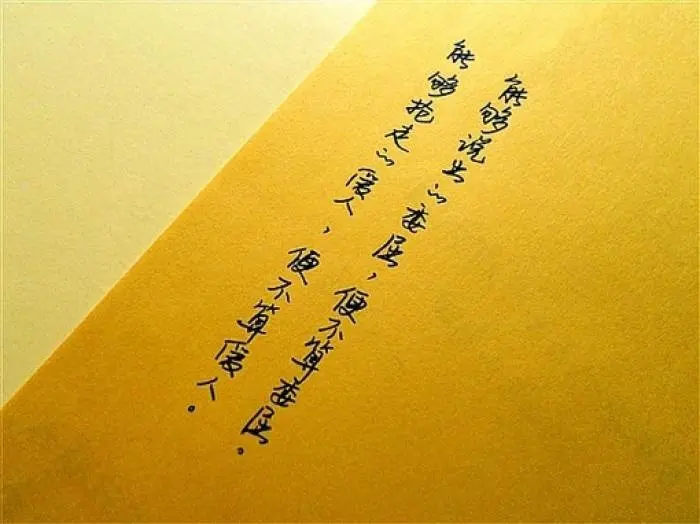 能够说出的委屈，便不算委屈。
能够抢走的爱人，便不算爱人。